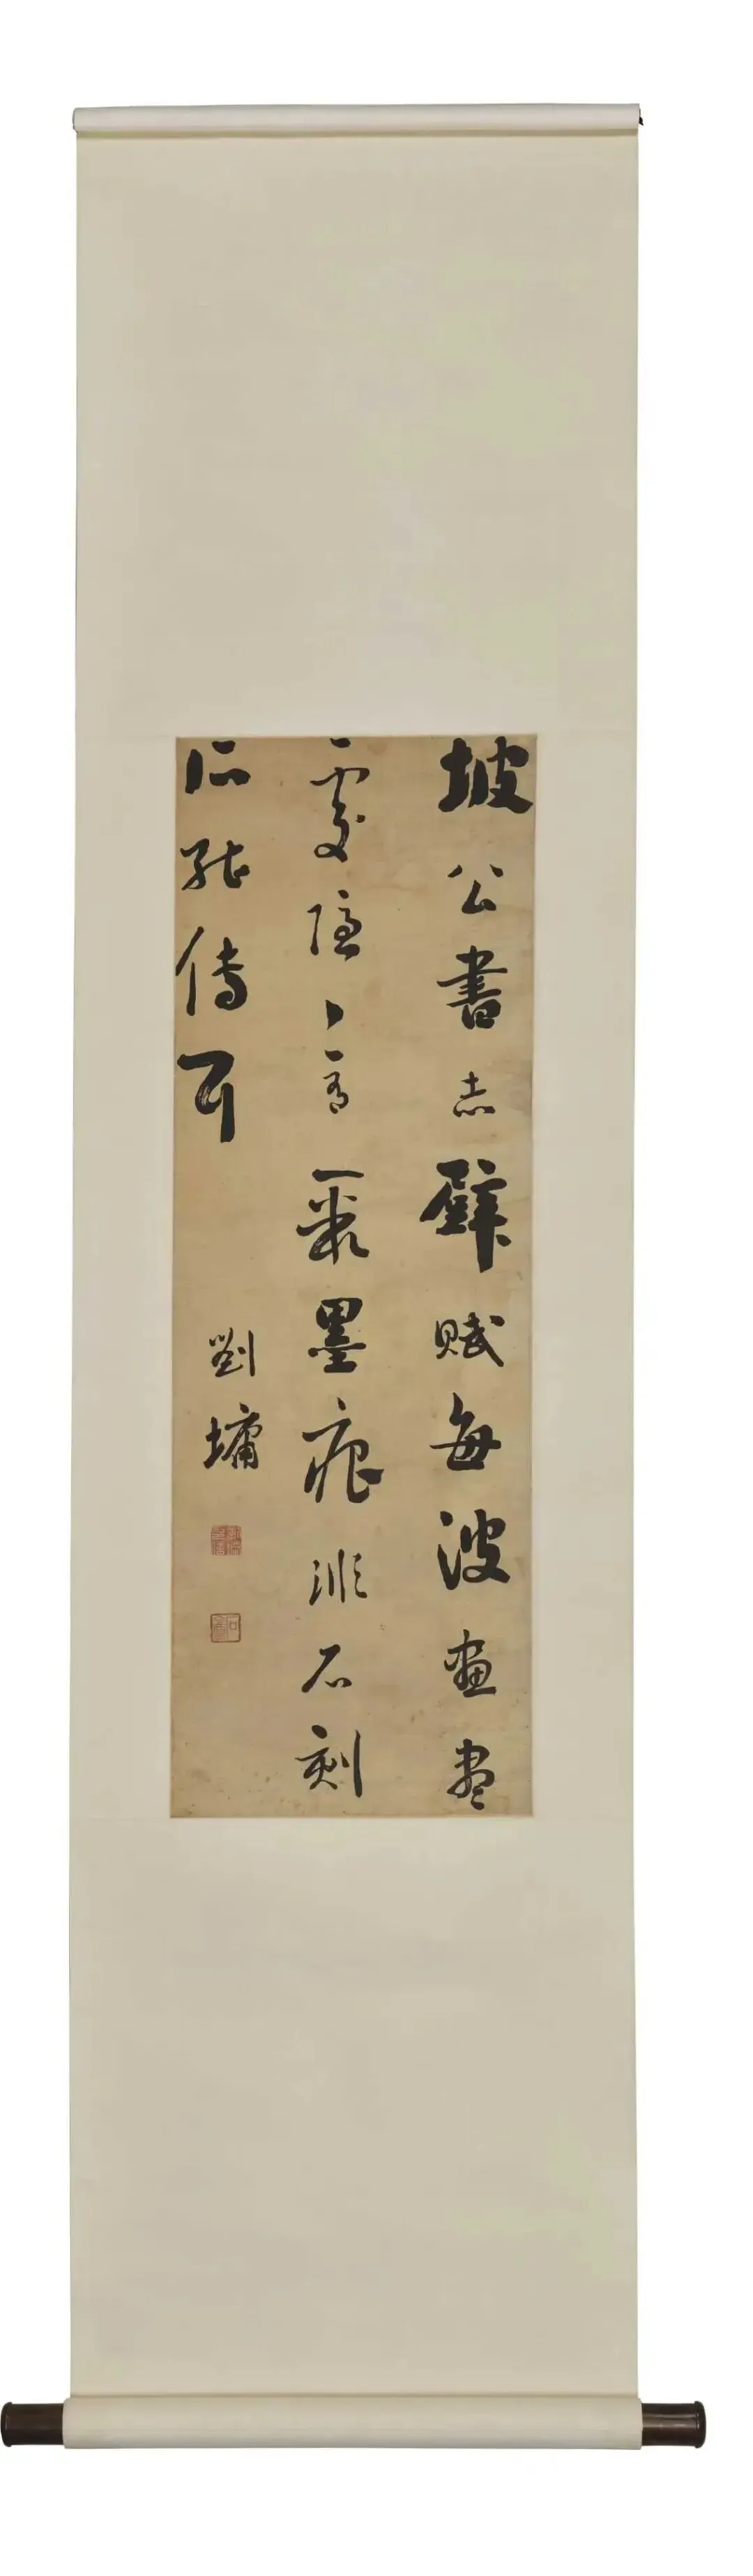 坡公書赤壁賦每波畫盡
處隱々有聚墨痕非石刻
所能傳耳
劉墉